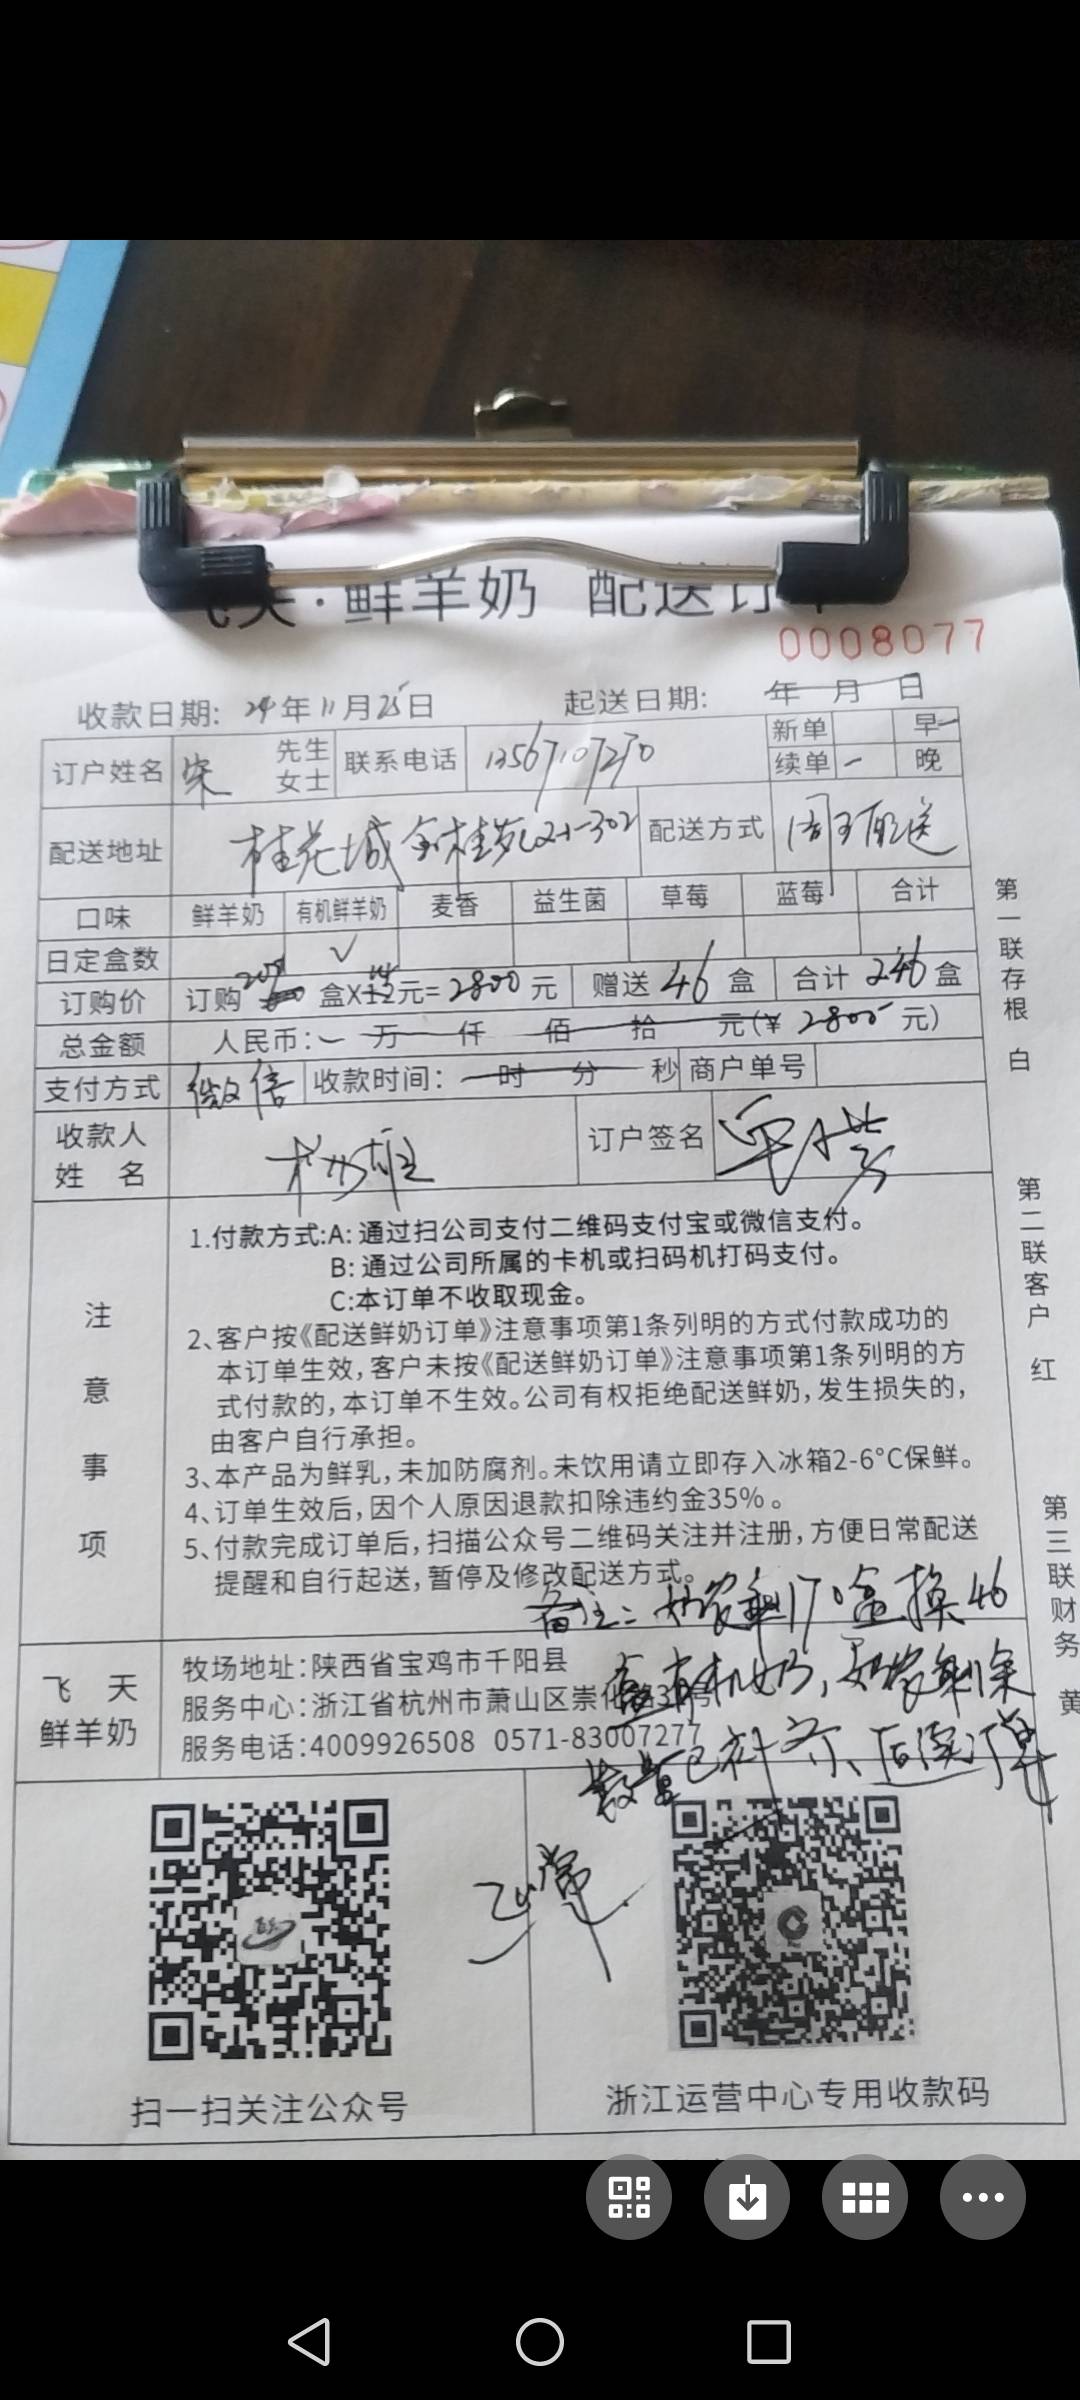 飞天·鲜羊奶 配送订单
0008077
收款日期: 24年11月25日 起送日期: 年 月 日
订户姓名 宋 先生 女士 联系电话 13567107270 新单 早
续单 晚
配送地址 桂花城金桂苑21-302 配送方式 周五配送
口味 鲜羊奶 有机鲜羊奶 麦香 益生菌 草莓 蓝莓 合计
日定盒数 √
订购价 订购 200 盒X14元=2800元 赠送 46 盒 合计 246 盒
总金额 人民币: 万 仟 佰 拾 元(¥ 2800 元)
支付方式 微信 收款时间: 时 分 秒 商户单号
收款人姓名 杨雄 订户签名
注意事项
1.付款方式:A: 通过扫公司支付二维码支付宝或微信支付。
B: 通过公司所属的卡机或扫码机打码支付。
C:本订单不收取现金。
2、客户按《配送鲜奶订单》注意事项第1条列明的方式付款成功的
本订单生效,客户未按《配送鲜奶订单》注意事项第1条列明的方
式付款的,本订单不生效。公司有权拒绝配送鲜奶,发生损失的,
由客户自行承担。
3、本产品为鲜乳,未加防腐剂。未饮用请立即存入冰箱2-6°C保鲜。
4、订单生效后,因个人原因退款扣除违约金35%。
5、付款完成订单后,扫描公众号二维码关注并注册,方便日常配送
提醒和自行起送,暂停及修改配送方式。
备注: 奶农剩170盒换46
盒有机奶,奶农剩余
数量已补齐、后续订单
正常.
飞天 鲜羊奶
牧场地址:陕西省宝鸡市千阳县
服务中心:浙江省杭州市萧山区崇化路3号
服务电话:4009926508 0571-83007277
扫一扫关注公众号
浙江运营中心专用收款码
第一联存根 白
第二联客户 红
第三联财务 黄